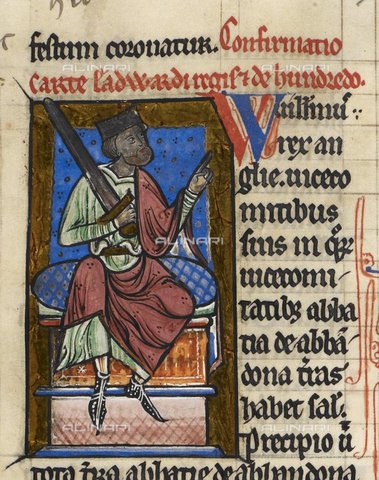 festum coronatur. Confirmatio
carte Eadwardi regis & de hundredo.
Willmus
rex an
glie. uiceco
mitibus
suis in qͥbꝫ
uicecomi-
tatibꝫ abba
tia de abbẽ
dona t̃ras
habet sal̃.
Precipio ũ
tota t̃ra abbatie de abbendona
ALINARI
ALINARI
ALINARI
ALINARI